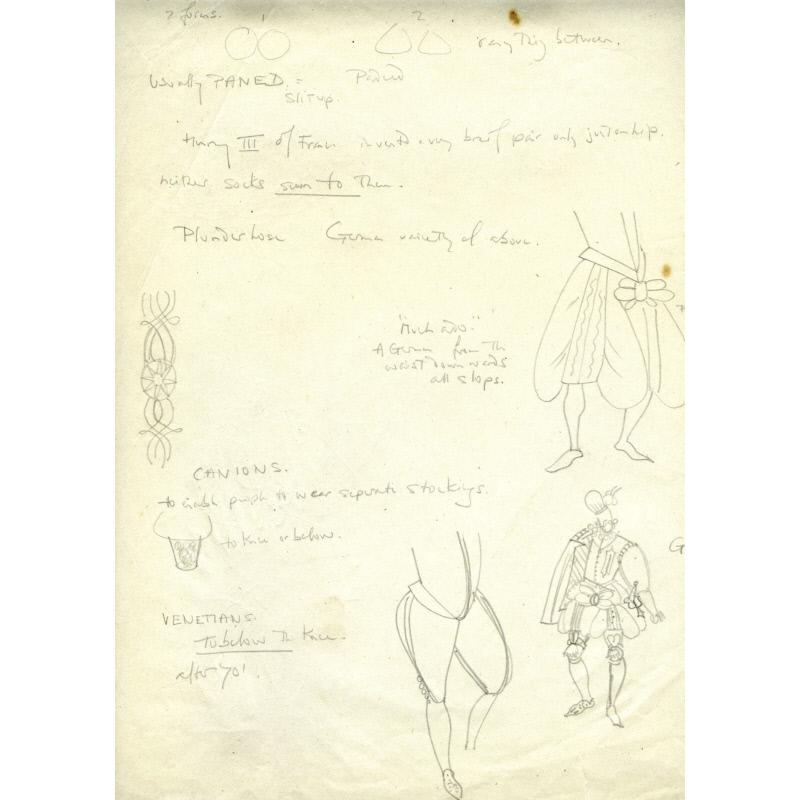 2 forms. 1 2
very thing between.
Usually PANED. =
Slit up.
Henry III of France invented a very brief pair only just on hip.
neither socks sewn to them.
Plunderhose German variety of above.
"Much ado."
A German from the
waist downwards
all slops.
CANIONS.
to enable people to wear separate stockings.
to knee or below.
G
VENETIANS.
To below The Knee.
after '70'.